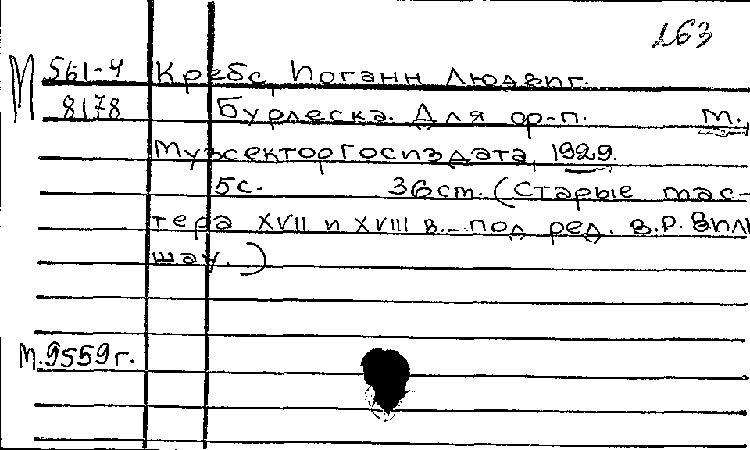 163
М 561-4 Кребс, Иоганн Людвиг.
8178 Бурлеска. Для ор-п. М.,
Музсектор Госиздата, 1929.
5с. 36cm. (Старые мас-
тера XVII и XVIII в. под ред. В.Р. Виль
шау.)
М.9559г.